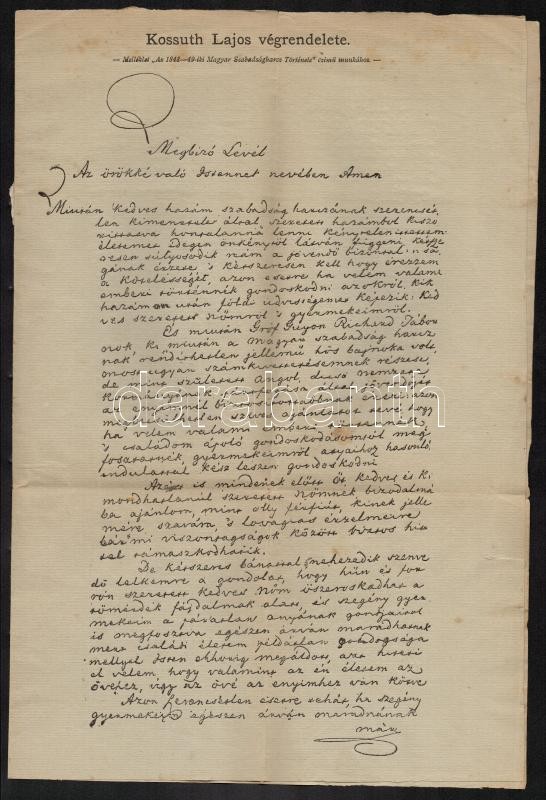 Kossuth Lajos végrendelete.
— Melléklet „Az 1848—49-iki Magyar Szabadságharcz Története" czimű munkához. —
Megbizó Levél
Az örökké való Istennek nevében Amen
Miután Kedves hazám szabadság harczának szerencsét
len kimenetele által, szeretett hazámból kiszo
rittatva hontalanná lenni kénytelenittettem
életemet idegen önkénytől látván függeni, kétsze
resen sulyosodik rám a jövendő
gának érzete 's kétszeresen kell hogy érezzem
a kötelességet, azon esetre ha velem valami
emberi történnék gondoskodni azokról, kik
hazám után földi üdvességemet képezik: Ked
ves szeretett Nőmről 's gyermekeimről.
És miután Gróf Guyon Richárd Tábor
nok, ki miután a Magyar szabadság harcz
nak rendithetlen jellemű hős bajnoka volt,
most ugyan számkivettetésemnek részese,
de mint született Angol, dicső nemzete
ha velem valami emberi történnék
's családom ápoló gondoskodásomtól meg
fosztatnék, gyermekeimről atyaihoz hasonló
indulattal kész leszen gondoskodni
Azért is mindenek előtt Őt, kedves és ki
mondhatlanúl szeretett Nőmnek bizodalmá
ba ajánlom, mint olly férfiút, kinek jelle
mére, szavára, 's lovagias érzelmeire
bár mi viszontagságok között biztos hit
tel támaszkodhatik.
De kétszeres bánattal nehezedik szenve
dő lelkemre a gondolat, hogy hűn és for
rón szeretett kedves Nőm összeroskadhat a
tömérdek fájdalmak alatt, és szegény gyer
mekeim a páratlan anyának gondjaitól
is megfosztva egészen árván maradhatnak
mert családi életem példátlan boldogsága
mellyel Isten ekkorig megáldott, azt hiteti
el velem, hogy valamint az én életem az
övéhez, úgy az övé az enyimhez van kötve
Azon szerencsétlen esetre tehát, ha szegény
gyermekeim egészen árván maradnának
már
darabanth